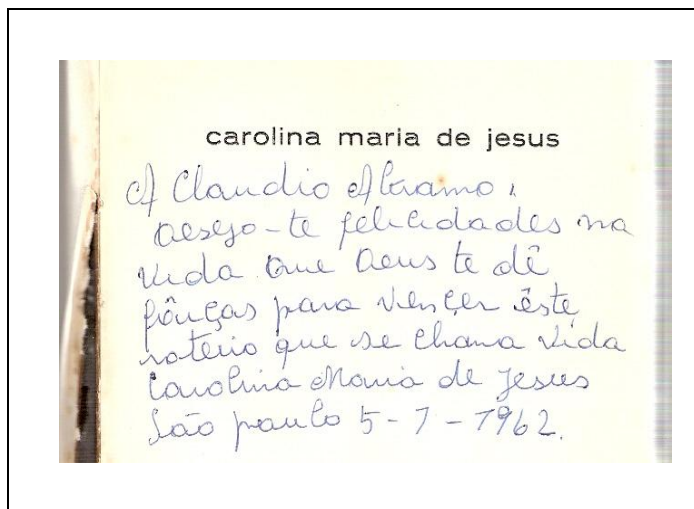 carolina maria de jesus
A Claudio Abramo,
desejo-te felicidades na
vida que Deus te dê
fôrças para vençer êste
roteiro que se chama vida
Carolina Maria de Jesus
São paulo 5-1-1962.